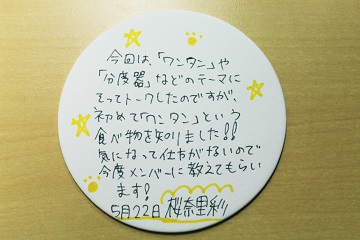 今回は、「ワンタン」や
「分度器」などのテーマに
そってトークしたのですが、
初めて「ワンタン」という
食べ物を知りました!!
気になって仕方がないので
今度メンバーに教えてもらい
ます!
5月22日 桜奈里彩